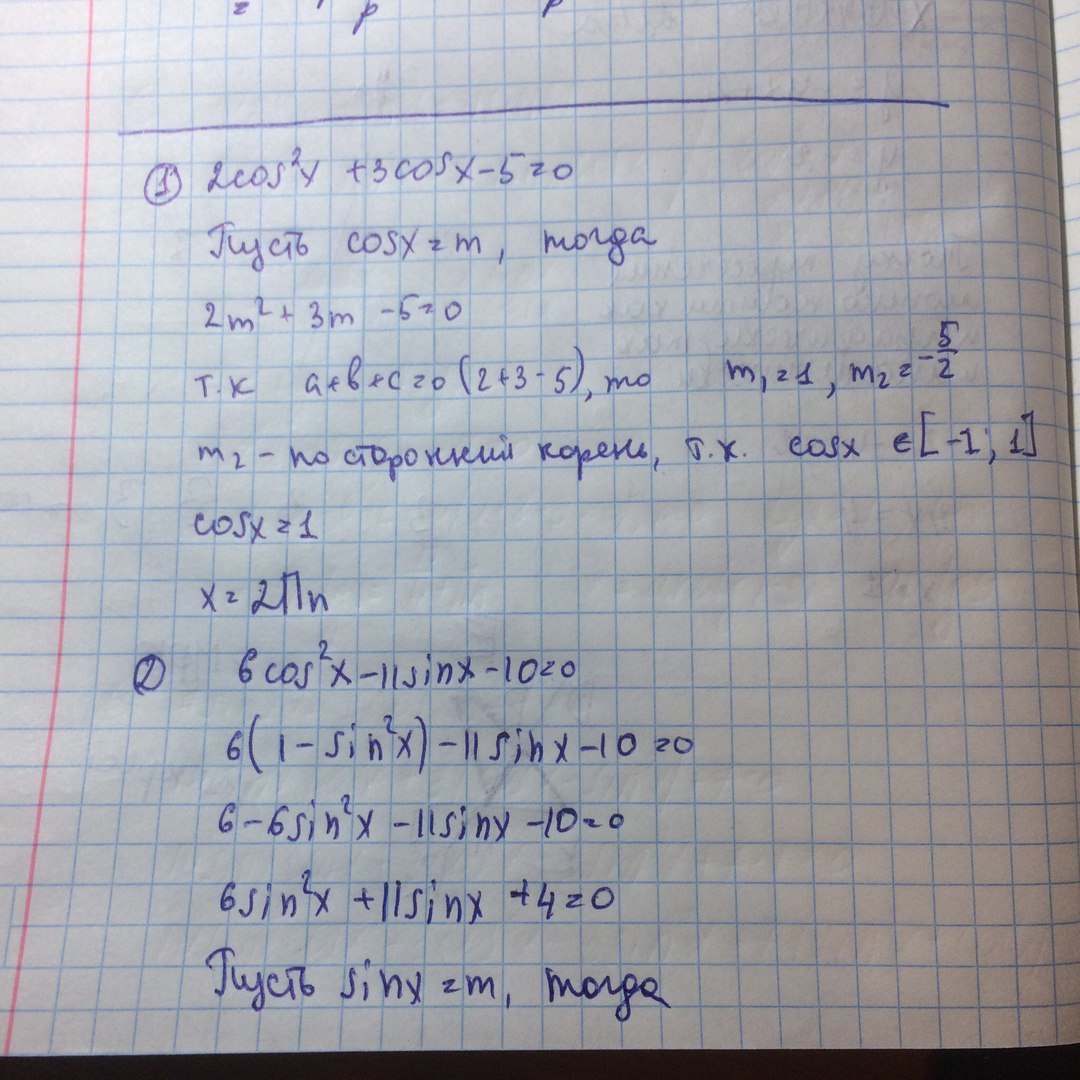 ① 2cos²x + 3cosx - 5 = 0
Пусть cosx = m, тогда
2m² + 3m - 5 = 0
т.к a + b + c = 0 (2 + 3 - 5), то m₁ = 1, m₂ = -5/2
m₂ - посторонний корень, т.к. cosx ∈ [-1; 1]
cosx = 1
x = 2Пn
② 6cos²x - 11sinx - 10 = 0
6(1 - sin²x) - 11sinx - 10 = 0
6 - 6sin²x - 11sinx - 10 = 0
6sin²x + 11sinx + 4 = 0
Пусть sinx = m, тогда